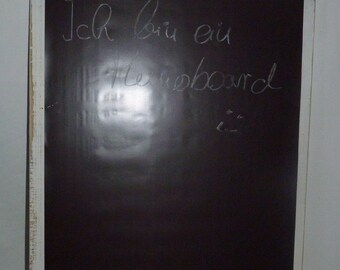 Ich bin ein
Memoboard
:)